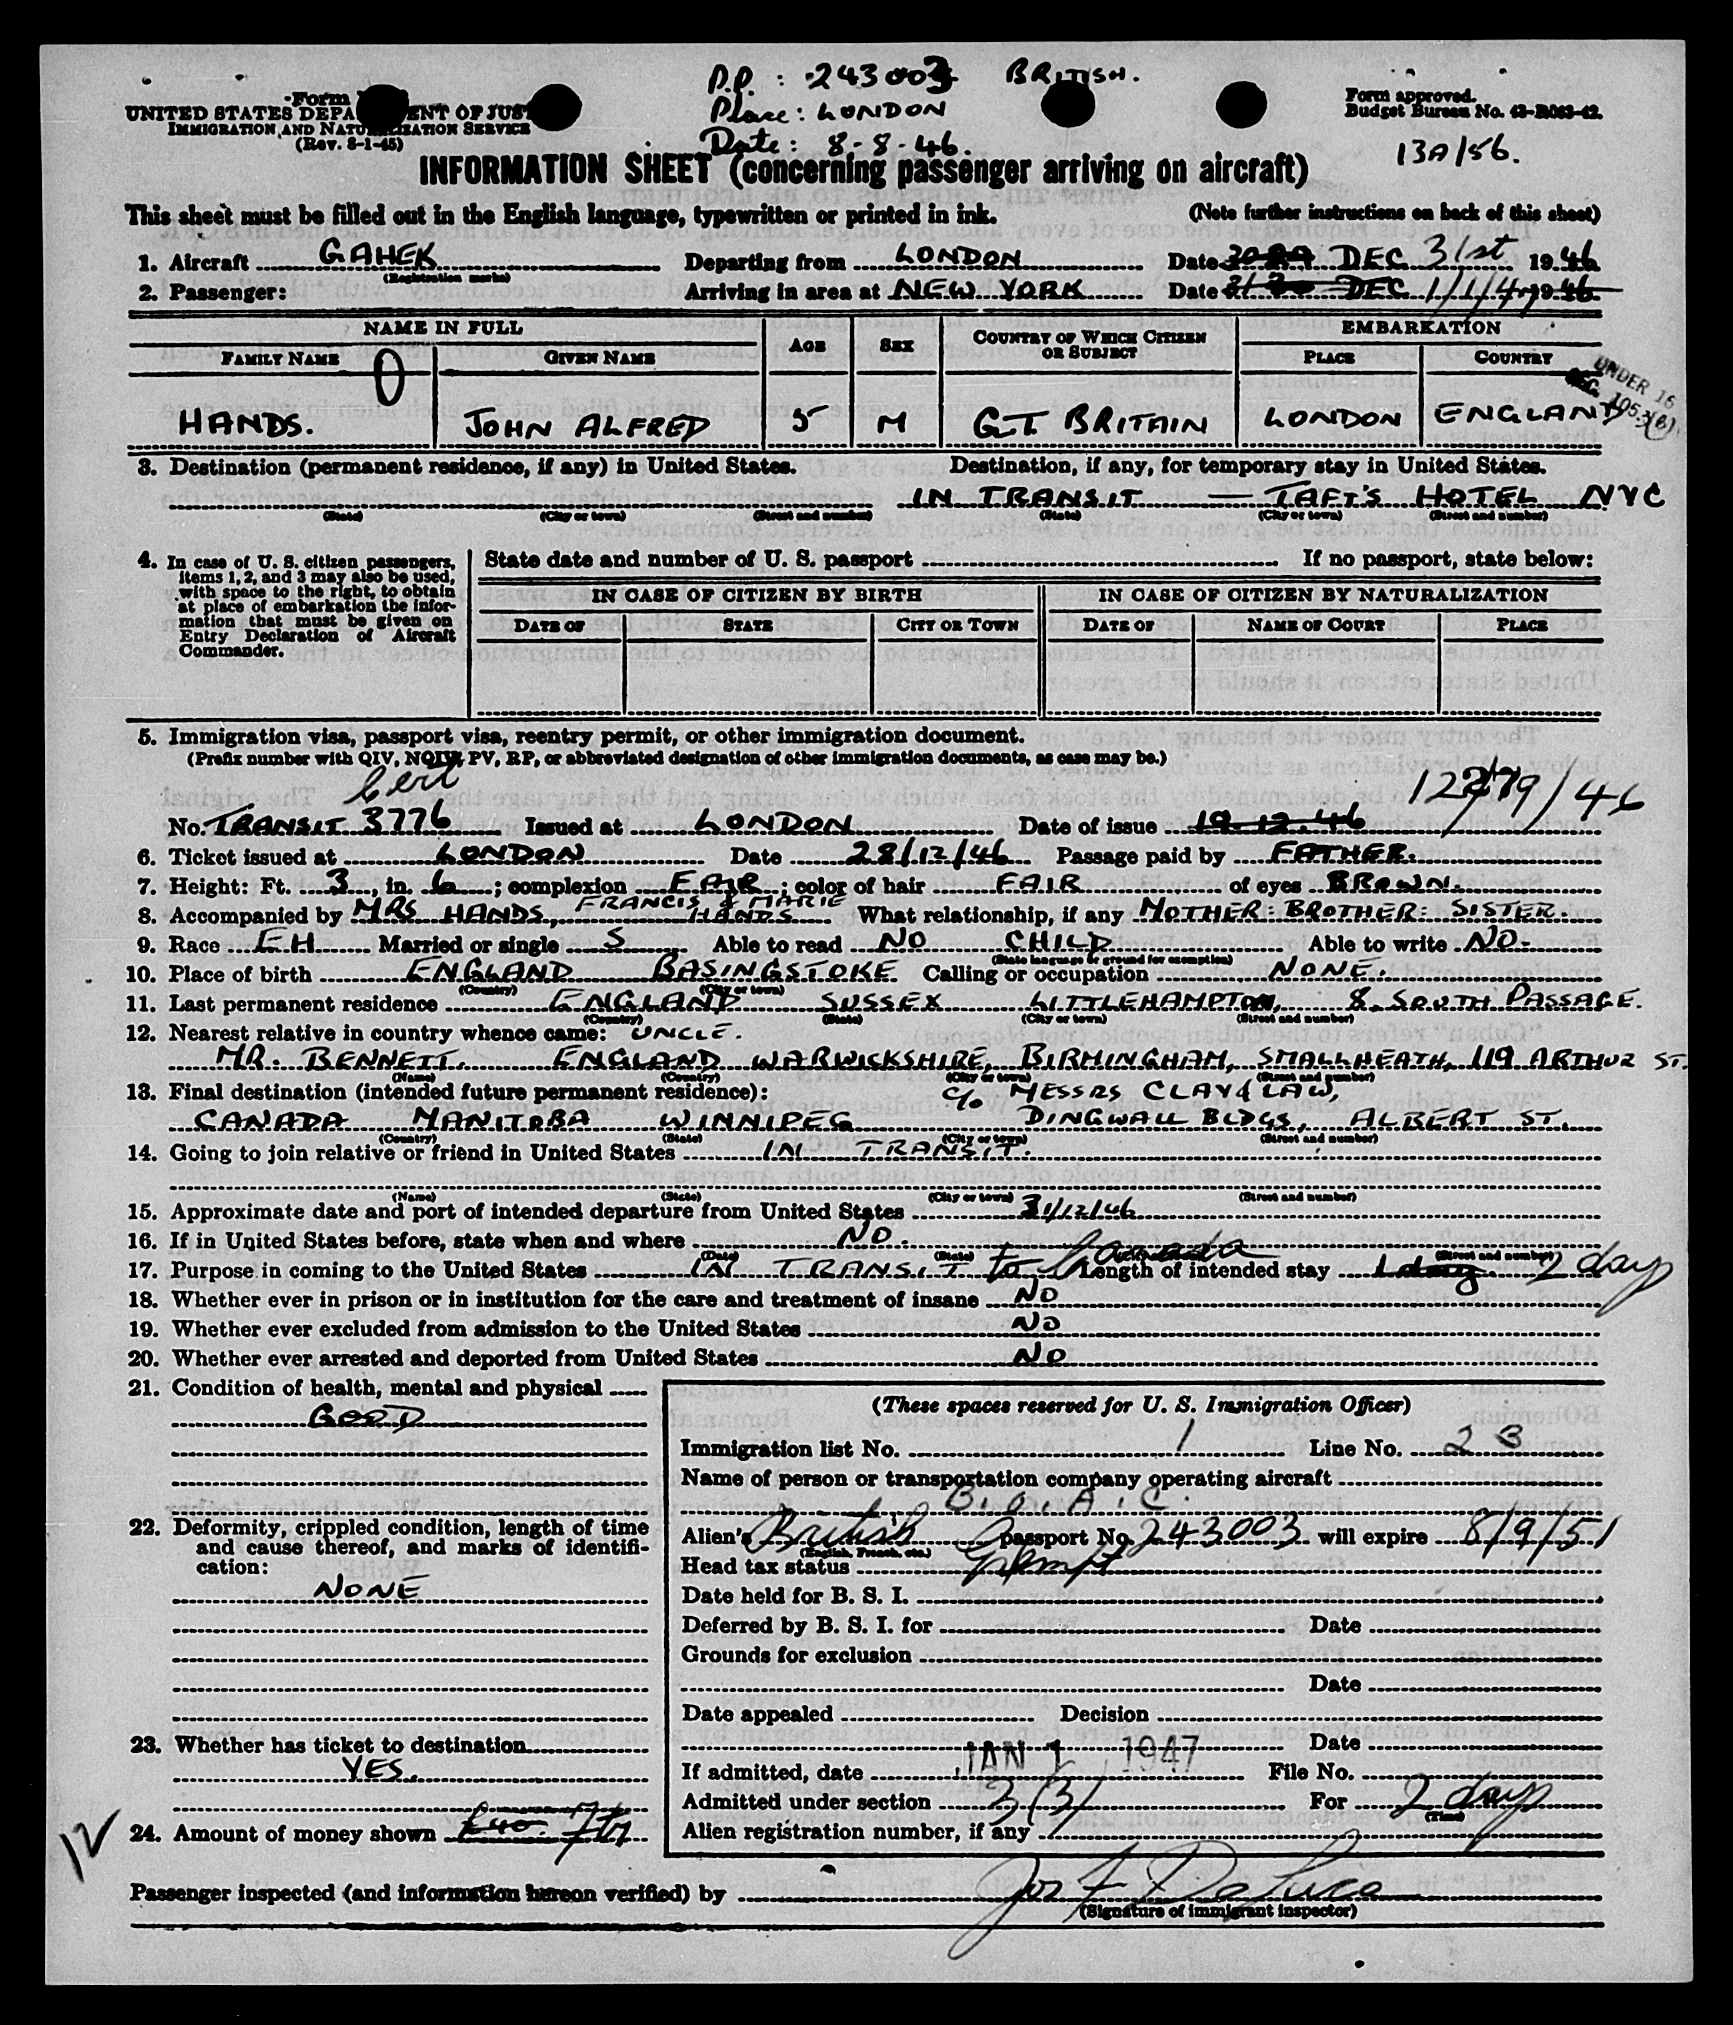 P.P. : 243003 BRITISH.
Place: LONDON
Date: 8-8-46.
Form
UNITED STATES DEPA ENT OF JUST
IMMIGRATION AND NATURALIZATION SERVICE
(Rev. 8-1-45)
Form approved.
Budget Bureau No. 43-R083-42.
13A/56.
INFORMATION SHEET (concerning passenger arriving on aircraft)
This sheet must be filled out in the English language, typewritten or printed in ink. (Note further instructions on back of this sheet)
1. Aircraft GAHEK Departing from LONDON Date DEC 31st 1946
(Registration marks)
2. Passenger: Arriving in area at NEW YORK Date DEC 1/1/47 1946
NAME IN FULL AGE SEX COUNTRY OF WHICH CITIZEN OR SUBJECT EMBARKATION
FAMILY NAME GIVEN NAME PLACE COUNTRY
UNDER 16
HANDS. JOHN ALFRED 5 M GT BRITAIN LONDON ENGLAND
3. Destination (permanent residence, if any) in United States. Destination, if any, for temporary stay in United States.
IN TRANSIT — TAFT'S HOTEL NYC
(State) (City or town) (Street and number) (State) (City or town) (Street and number)
4. In case of U. S. citizen passengers, items 1, 2, and 3 may also be used, with space to the right, to obtain at place of embarkation the information that must be given on Entry Declaration of Aircraft Commander.
State date and number of U. S. passport If no passport, state below:
IN CASE OF CITIZEN BY BIRTH IN CASE OF CITIZEN BY NATURALIZATION
DATE OF STATE CITY OR TOWN DATE OF NAME OF COURT PLACE
5. Immigration visa, passport visa, reentry permit, or other immigration document.
(Prefix number with QIV, NQIV, PV, RP, or abbreviated designation of other immigration documents, as case may be.)
Cert
No. TRANSIT 3776 Issued at LONDON Date of issue 19.12.46
6. Ticket issued at LONDON Date 28/12/46 Passage paid by FATHER.
7. Height: Ft. 3, in. 6; complexion FAIR; color of hair FAIR of eyes BROWN.
8. Accompanied by MRS HANDS, FRANCIS & MARIE HANDS What relationship, if any MOTHER: BROTHER: SISTER.
9. Race EH Married or single S Able to read NO CHILD Able to write NO.
(State language or ground for exemption)
10. Place of birth ENGLAND BASINGSTOKE Calling or occupation NONE.
(Country) (City or town)
11. Last permanent residence ENGLAND SUSSEX LITTLEHAMPTON, 8. SOUTH PASSAGE.
(Country) (State) (City or town) (Street and number)
12. Nearest relative in country whence came: UNCLE.
MR. BENNETT. ENGLAND WARWICKSHIRE, BIRMINGHAM, SMALLHEATH, 119 ARTHUR ST.
(Name) (Country) (City or town) (Street and number)
13. Final destination (intended future permanent residence): C/o MESSRS CLAY & LAW,
CANADA MANITOBA WINNIPEG DINGWALL BLDGS, ALBERT ST.
(Country) (State) (City or town) (Street and number)
14. Going to join relative or friend in United States IN TRANSIT.
(Name) (State) (City or town) (Street and number)
15. Approximate date and port of intended departure from United States 31/12/46
16. If in United States before, state when and where NO.
(Date) (State) (Street and number)
17. Purpose in coming to the United States IN TRANSIT to Canada Length of intended stay 1 day 2 day
18. Whether ever in prison or in institution for the care and treatment of insane NO
19. Whether ever excluded from admission to the United States NO
20. Whether ever arrested and deported from United States NO
21. Condition of health, mental and physical
GOOD
22. Deformity, crippled condition, length of time and cause thereof, and marks of identification:
NONE
23. Whether has ticket to destination
YES.
24. Amount of money shown £40.
12
(These spaces reserved for U. S. Immigration Officer)
Immigration list No. 1 Line No. 23
Name of person or transportation company operating aircraft
B.O.A.C.
Alien's British passport No. 243003 will expire 8/9/51
(English, French, etc.)
Head tax status Exempt
Date held for B. S. I.
Deferred by B. S. I. for Date
Grounds for exclusion
Date
Date appealed Decision
Date
If admitted, date JAN 1, 1947 File No.
Admitted under section 3(3) For 2 days
(Time)
Alien registration number, if any
Passenger inspected (and information hereon verified) by Jos F DeLuca
(Signature of immigrant inspector)